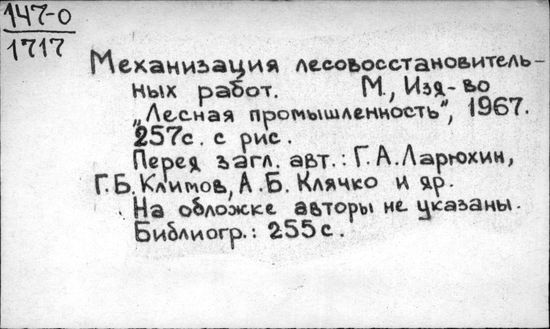 147-0
1717
Механизация лесовосстановитель-
ных работ. М., Изд-во
„Лесная промышленность", 1967.
257с. с рис.
Перед загл. авт.: Г.А.Ларюхин,
Г.Б.Климов, А.Б.Клячко и др.
На обложке авторы не указаны.
Библиогр.: 255с.